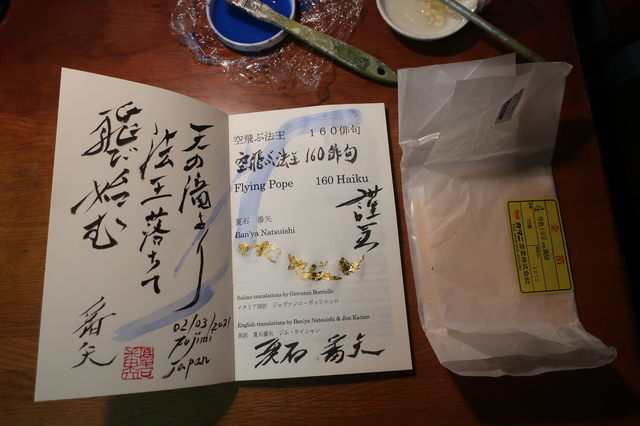 天の滝より
法王落ちて
飛び始む
番矢
02/03/2021
Fujimi
Japan
空飛ぶ法王　160俳句
空飛ぶ法王 160俳句
Flying Pope 160 Haiku
謹呈
夏石　番矢
Ban'ya Natsuishi
Italian translations by Giovanni Borriello
イタリア語訳　ジョヴァンニ・ボッリエッロ
English translations by Ban'ya Natsuishi & Jim Kacian
英訳　夏石番矢　ジム・ケイシャン
夏石 番矢